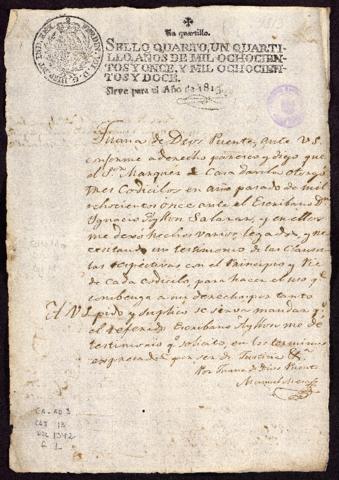 Un quartillo.
SELLO QUARTO, UN QUARTI-
LLO, AÑOS DE MIL OCHOCIEN-
TOS Y ONCE, Y MIL OCHOCIEN-
TOS Y DOCE.
Sirve para el Año de 181
Juana de Dios Puente, ante V.S.
conforme a derecho parezco y digo que
el Sor. Marques de Casa davila otorgó
tres Codicilos en año pasado de mil
ochocientos once ante el Escribano Dn.
Ignacio Ayllon Salazar, y en ellos
me dexó hechos varios legados, y ne-
cesitando un testimonio de las Clausu-
las respectivas con el Principio y Pie
de cada codicilo, para hacer el uso q.
combenga a mi derecho por tanto
A V.S. pido y suplico se sirva mandar q.
el referido Escribano Ayllon me de
testimonio q. solicito, en los terminos
expresados por ser de Justicia &a.
Por Juana de Dios Puente
Manuel
CA-AD 3
CAJ 13
DOC 1342
f. 1